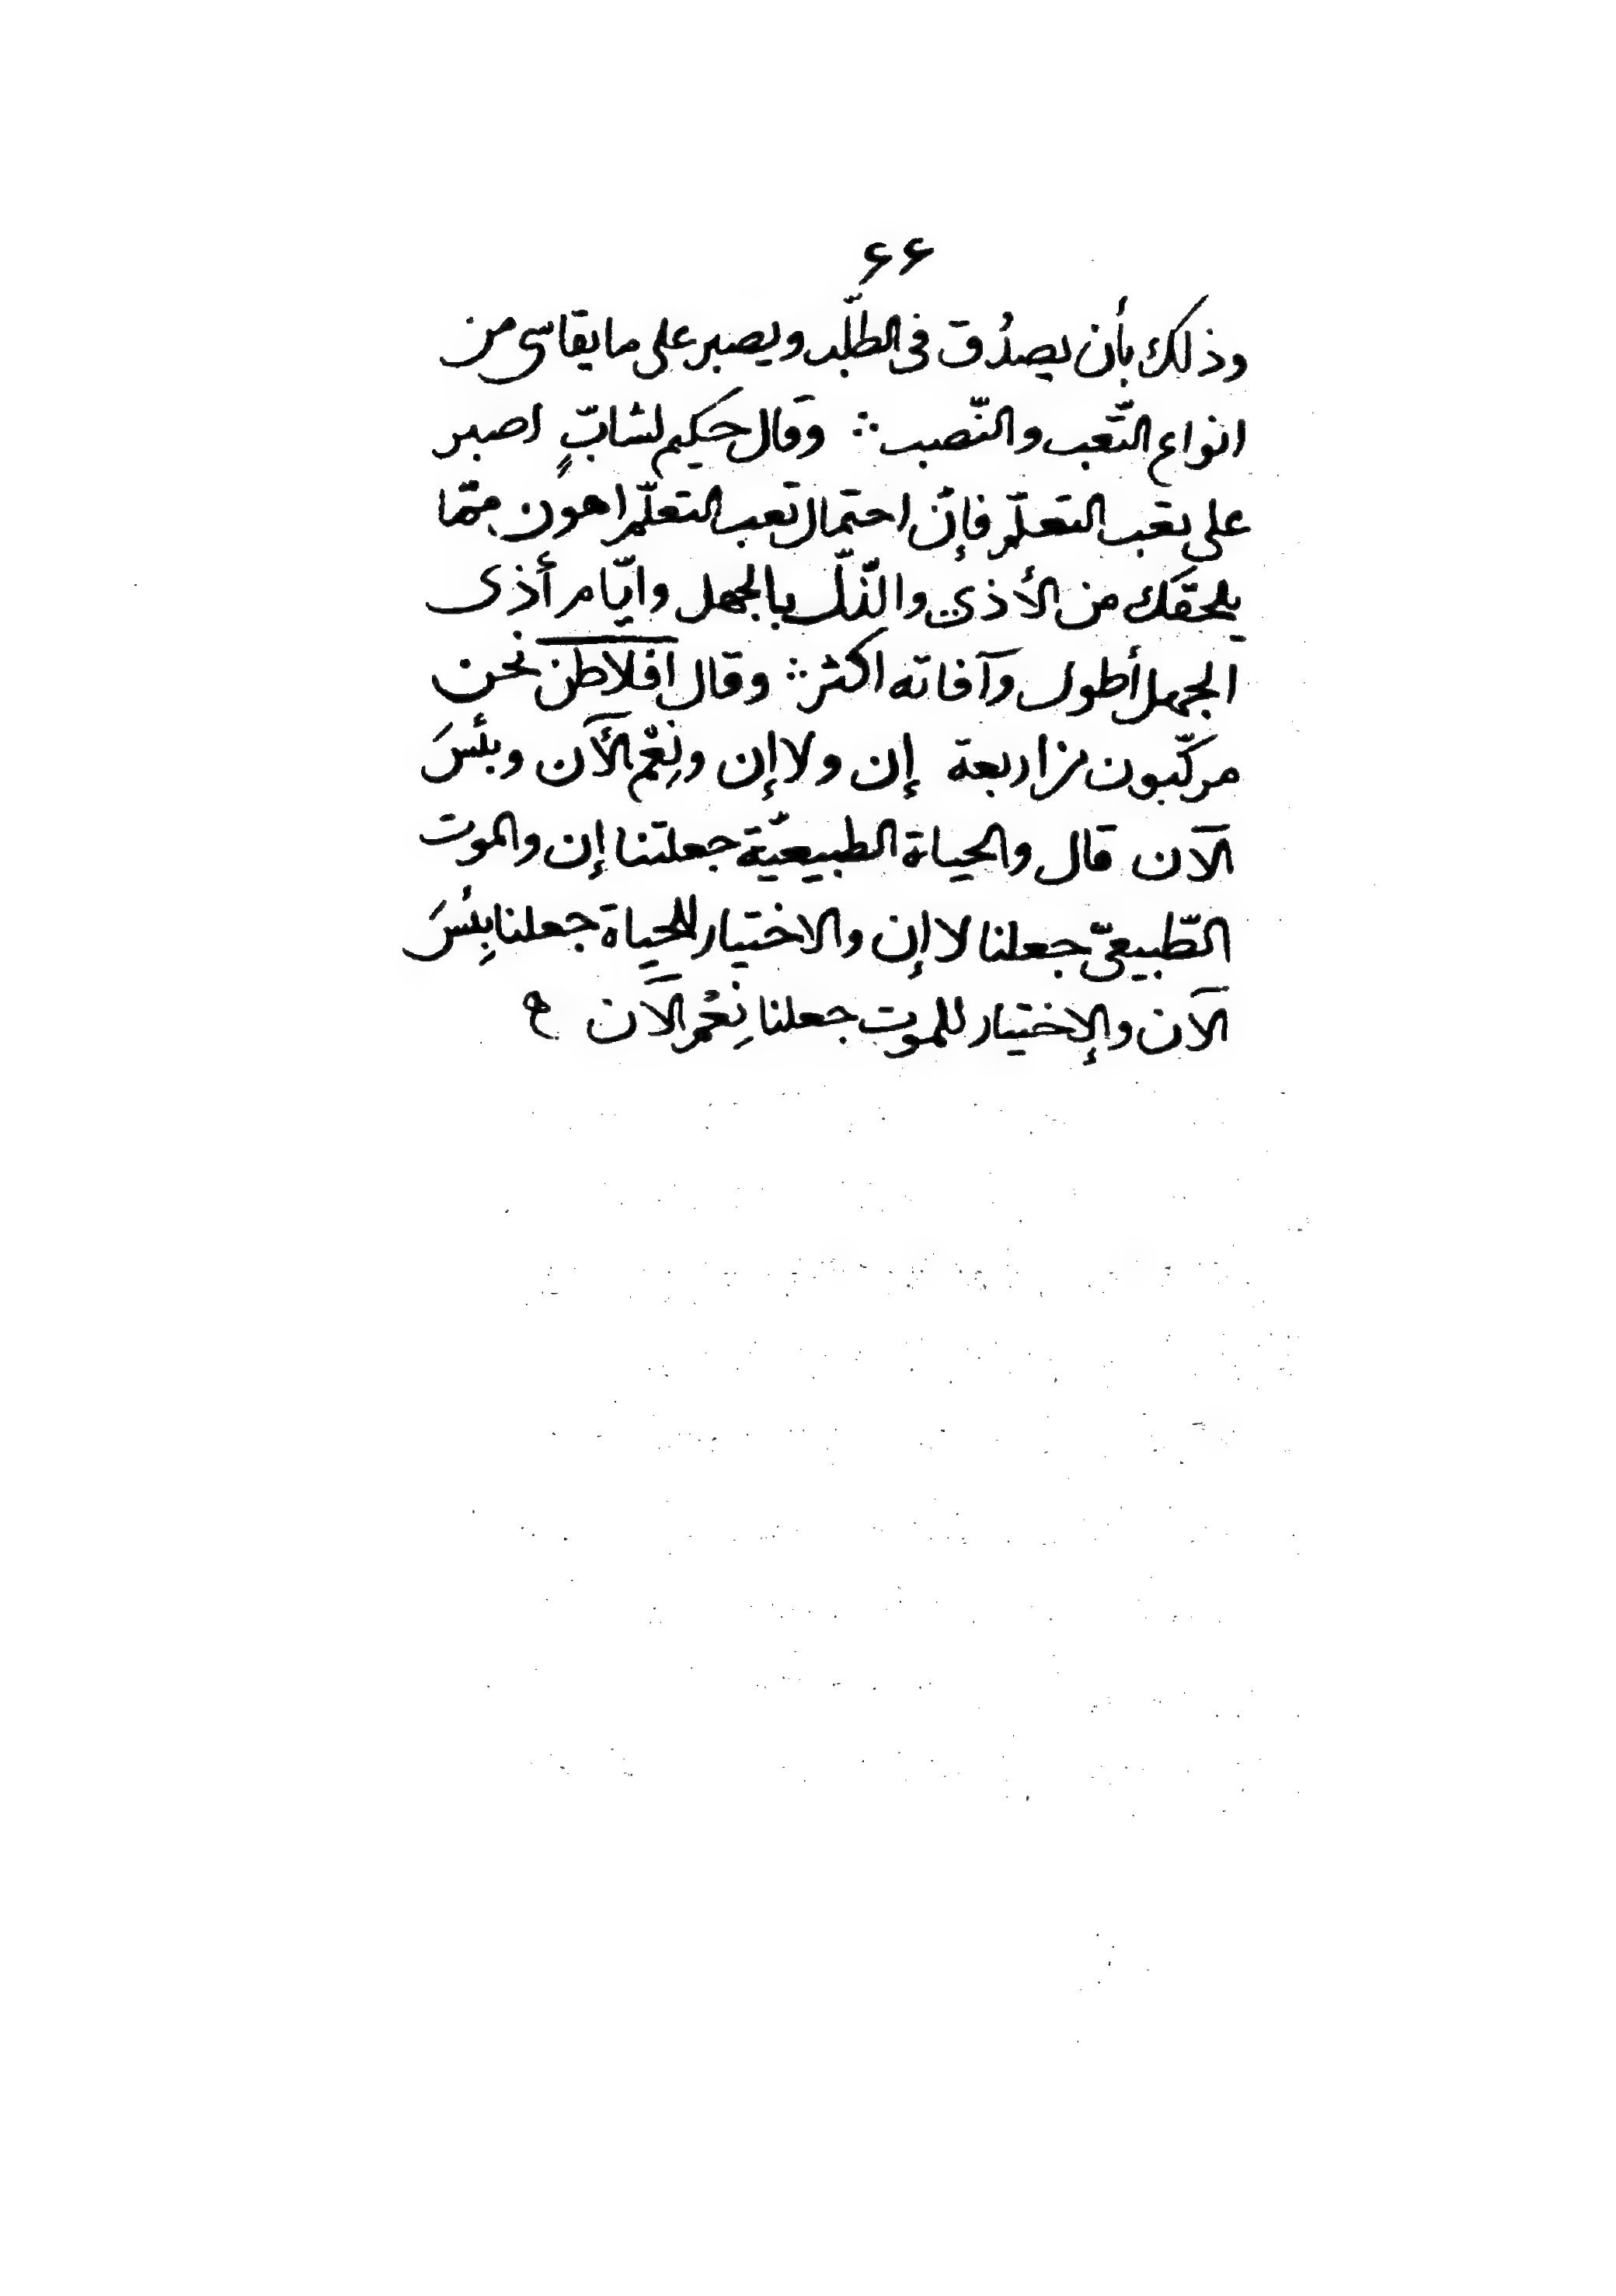 ۶۶
وذلك بأن يصدُق فى الطّلب ويصبر على ما يقاسى من
انواع التّعب والنّصب ∴ وقال حكيم لشابٍّ اصبر
على تعب التعلّم فإنّ احتمال تعب التعلّم اهون ممّا
يلحقك من الأذى والذّلّ بالجهل وايّام أذى
الجهل أطول وآفاته اكثر ∴ وقال افلاطن نحن
مركّبون من اربعة إن ولا إن ونِعْم الآن وبئسَ
الآن قال والحياة الطبيعيّة جعلتنا إن والموت
الطّبيعىّ جعلنا لا إن والاختيار للحياة جعلنا بِئسَ
الآن والإختيار للموت جعلنا نِعْم الآن ه